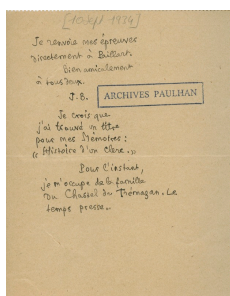 [10 sept 1934]
Je renvoie mes épreuves
directement à Paillart.
Bien amicalement
à tous deux.
J.B.
ARCHIVES PAULHAN
Je crois que
j'ai trouvé un titre
pour mes Mémoires :
« Histoire d'un Clerc. »
Pour l'instant,
je m'occupe de la famille
du Chasseur de
temps presse..